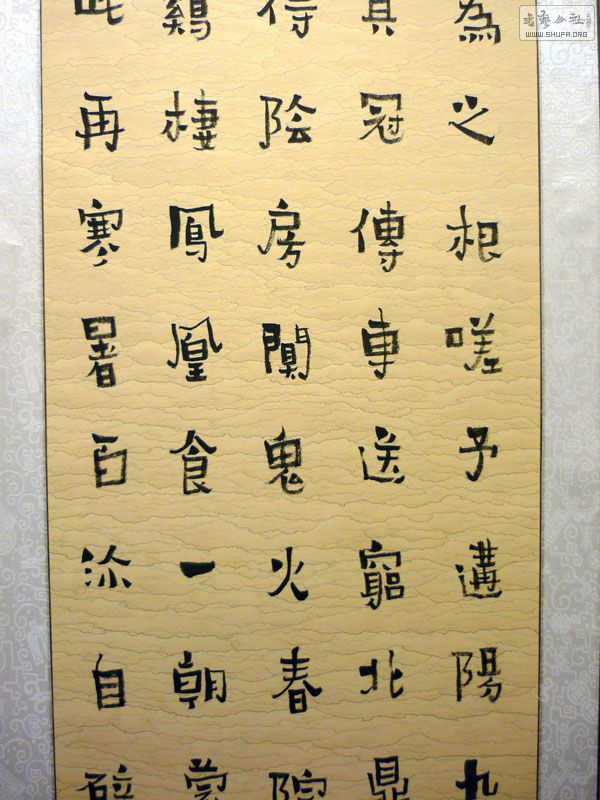 為之根嗟予遘陽九
其冠傳車送窮北鼎
得陰房闃鬼火春院
鷄棲鳳凰食一朝蒙
此再寒暑百沴自辟
书艺公社
WWW.SHUFA.ORG